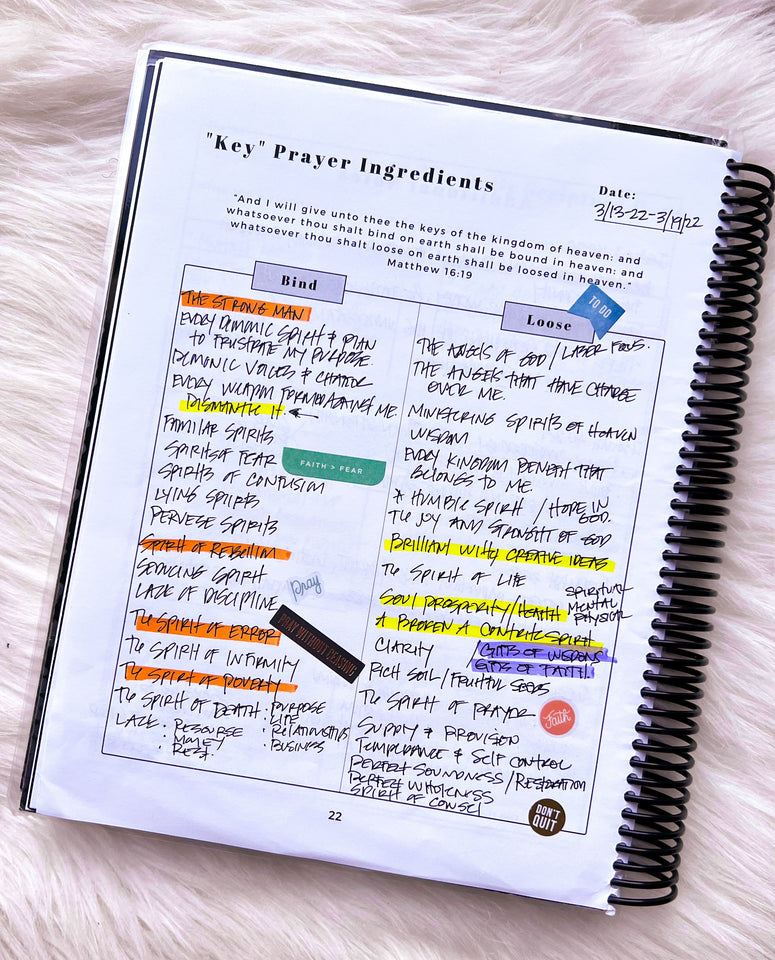 "Key" Prayer Ingredients
Date:
3/13-22-3/19/22
"And I will give unto thee the keys of the kingdom of heaven: and
whatsoever thou shalt bind on earth shall be bound in heaven: and
whatsoever thou shalt loose on earth shall be loosed in heaven."
Matthew 16:19
Bind
THE STRONG MAN
EVERY DEMONIC SPIRIT & PLAN
TO FRUSTRATE MY PURPOSE.
DEMONIC VOICES & CHATTER
EVERY WEAPON FORMED AGAINST ME.
DISMANTLE IT.
FAMILIAR SPIRITS
SPIRITS OF FEAR
FAITH > FEAR
SPIRITS OF CONFUSION
LYING SPIRITS
PERVESE SPIRITS
SPIRIT OF REBELLION
SEDUCING SPIRIT
pray
LACK OF DISCIPLINE
PRAY WITHOUT CEASING
THE SPIRIT OF ERROR
THE SPIRIT OF INFIRMITY
THE SPIRIT OF POVERTY
THE SPIRIT OF DEATH : PURPOSE
: LIFE
LACK : RESOURSE
: RELATIONSHIPS
: MONEY
: BUSINESS
: REST.
TO DO
Loose
THE ANGELS OF GOD / LASER FOCUS.
THE ANGELS THAT HAVE CHARGE
OVER ME.
MINISTERING SPIRITS OF HEAVEN
WISDOM
EVERY KINGDOM BENEFIT THAT
BELONGS TO ME.
A HUMBLE SPIRIT / HOPE IN
GOD.
THE JOY AND STRENGHT OF GOD
BRILLIANT WITTY CREATIVE IDEAS
THE SPIRIT OF LIFE
SOUL PROSPERITY/HEALTH
SPIRITUAL
MENTAL
PHYSICAL
A BROKEN A CONTRITE SPIRIT
CLARITY / GIFTS OF WISDOM
GIFTS OF FAITH.
RICH SOIL / FRUITFUL SEEDS
THE SPIRIT OF PRAYER
Faith
SUPPLY & PROVISION
TEMPERANCE & SELF CONTROL
PERFECT SOUNDNESS / RESTORATION
PERFECT WHOLENESS
SPIRIT OF
DON'T
QUIT
22